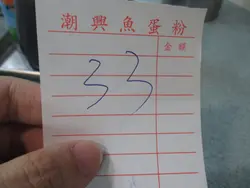 潮興魚蛋粉
金額
33